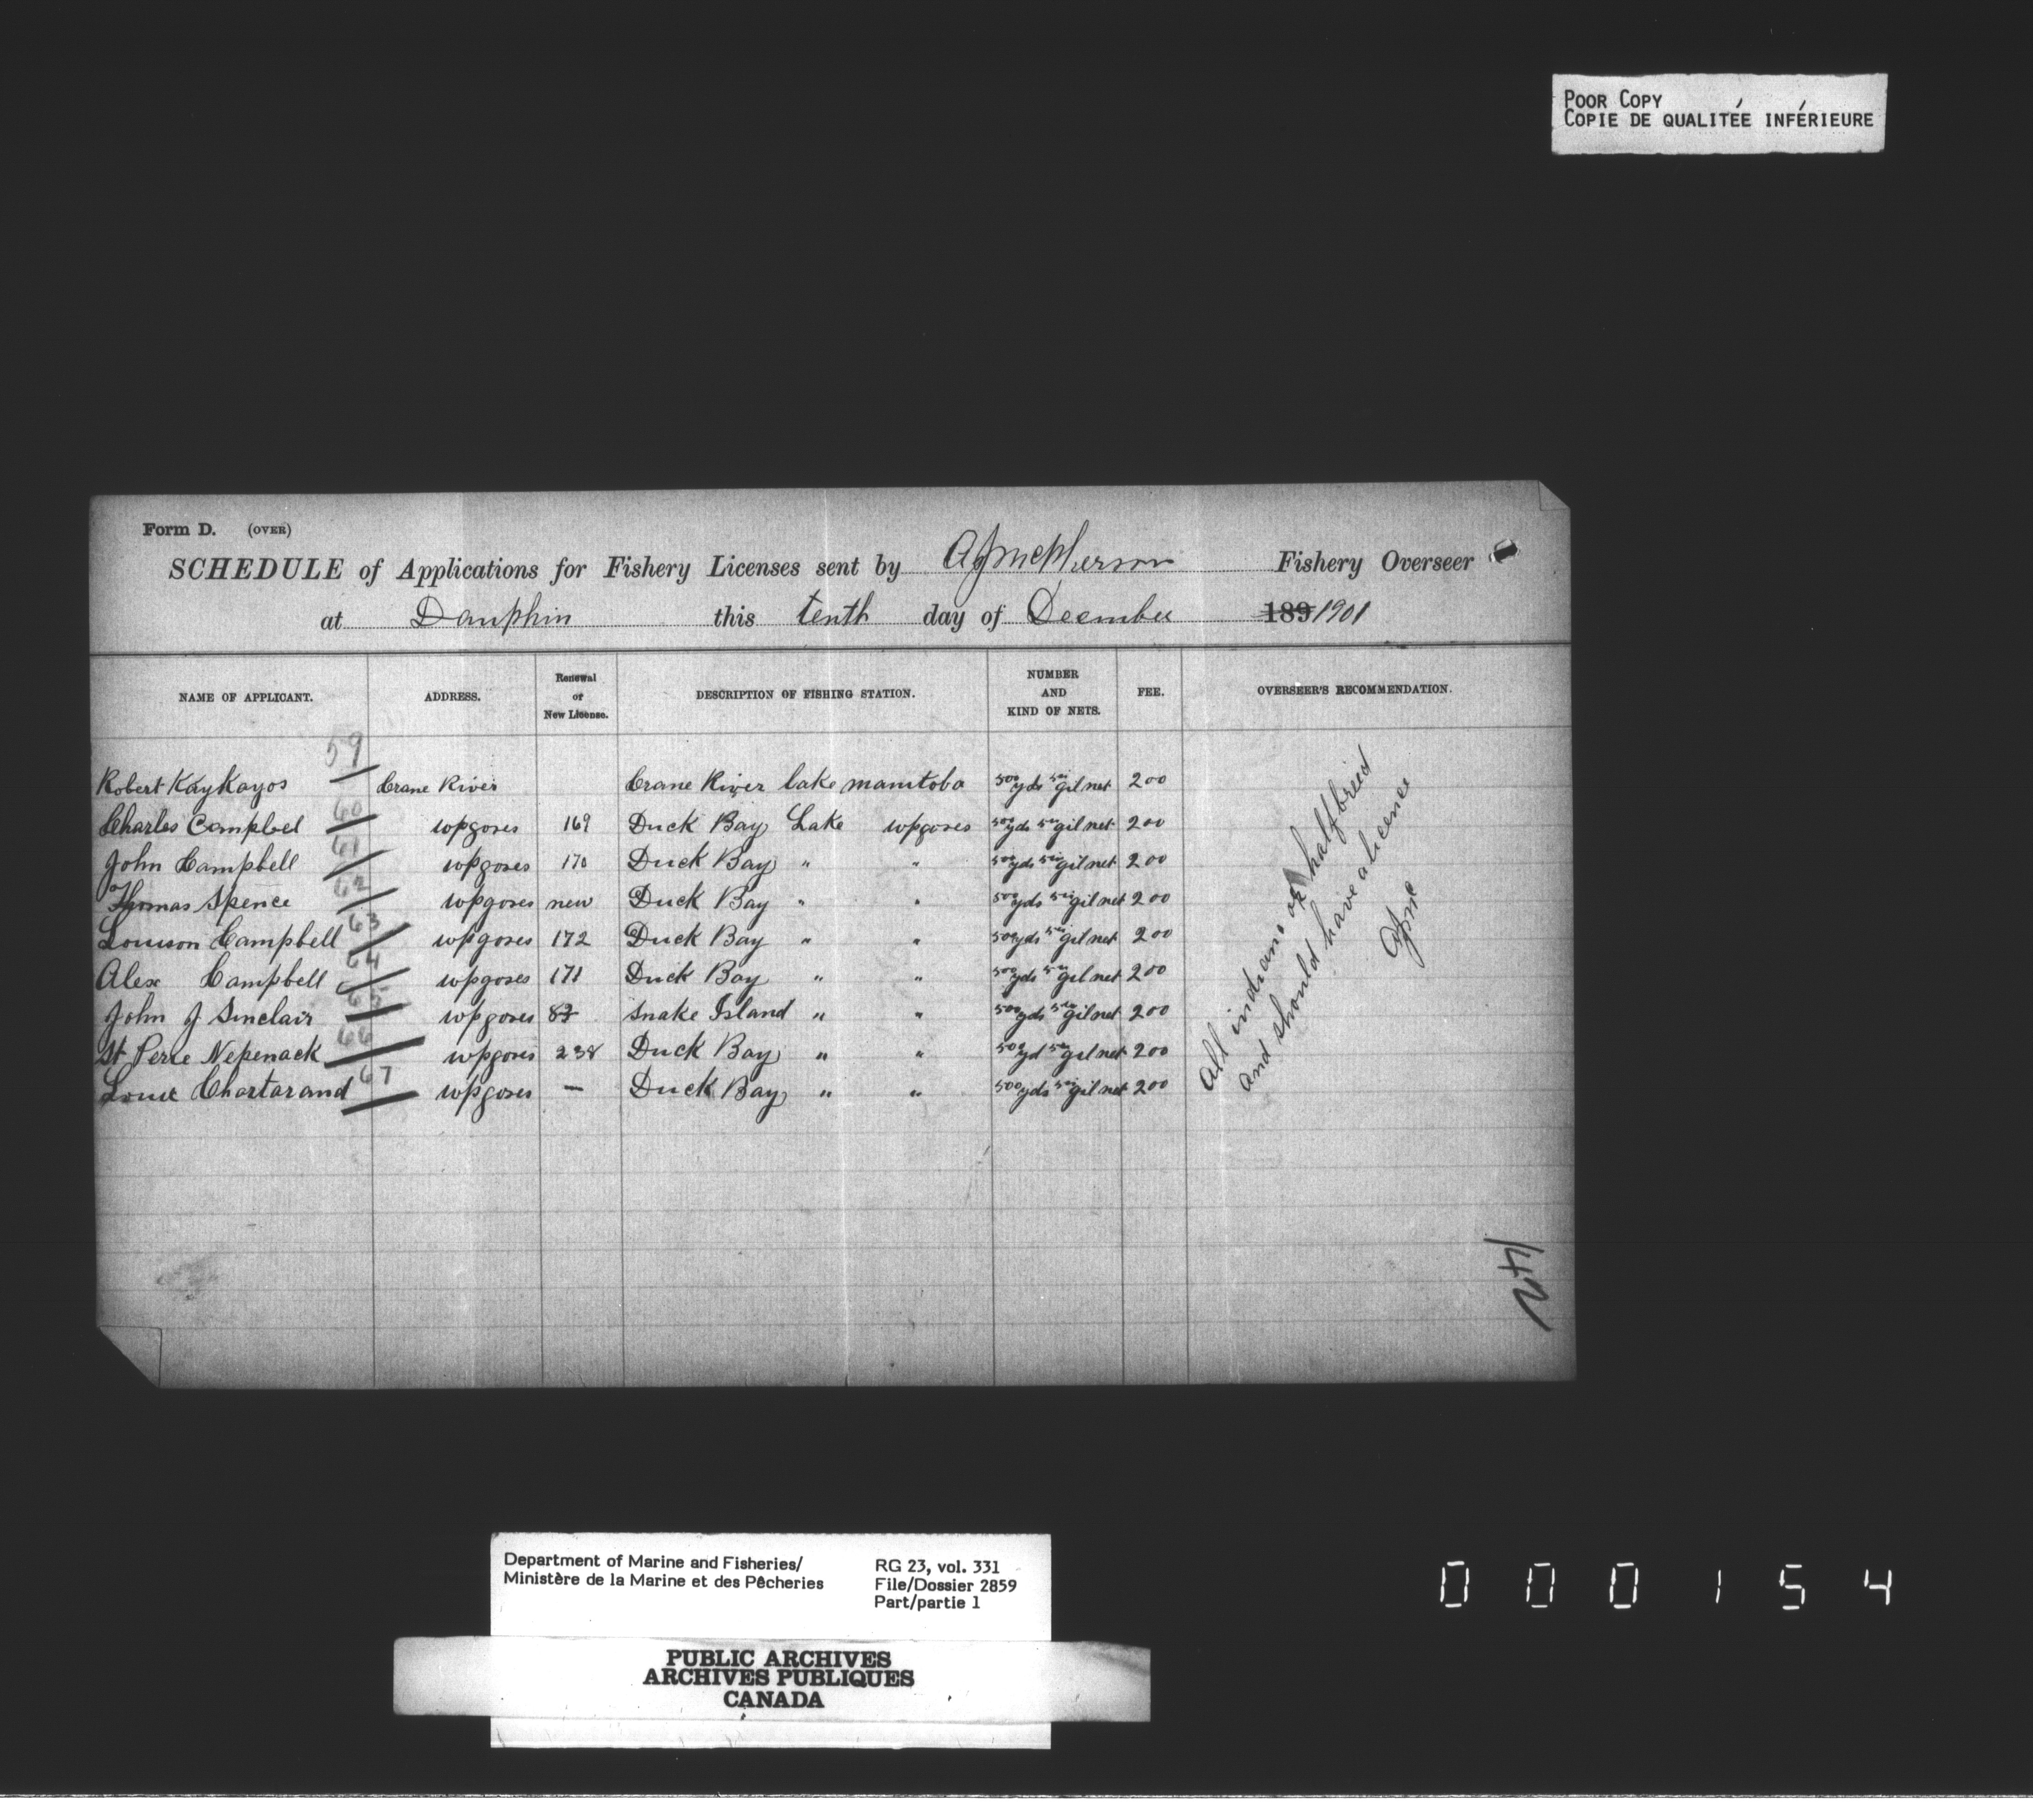 POOR COPY
COPIE DE QUALITÉE INFÉRIEURE
Form D. (OVER)
SCHEDULE of Applications for Fishery Licenses sent by A J McPherson Fishery Overseer
at Dauphin this tenth day of December 189 1901
NAME OF APPLICANT. ADDRESS. Renewal or New License. DESCRIPTION OF FISHING STATION. NUMBER AND KIND OF NETS. FEE. OVERSEER'S RECOMMENDATION.
Robert KayKayos 59 Crane River Crane River lake manitoba 500 yds 5 in gil net 2 00
Charles Campbel 60 wpgoses 169 Duck Bay Lake wpgoses 500 yds 5 in gil net 2 00
John Campbell 61 wpgoses 170 Duck Bay " " 500 yds 5 in gil net 2 00
Thomas Spence 62 wpgoses new Duck Bay " " 500 yds 5 in gil net 2 00
Louison Campbell 63 wpgoses 172 Duck Bay " " 500 yds 5 in gil net 2 00
Alex Campbell 64 wpgoses 171 Duck Bay " " 500 yds 5 in gil net 2 00
John J Sinclair 65 wpgoses 83 Snake Island " " 500 yds 5 in gil net 2 00
St Perre Nepenack 66 wpgoses 238 Duck Bay " " 500 yd 5 in gil net 2 00
Louie Chartarand 67 wpgoses — Duck Bay " " 500 yds 5 in gil net 2 00
All indians or halfbreed
and should have a licence
AJMc
Department of Marine and Fisheries/
Ministère de la Marine et des Pêcheries
RG 23, vol. 331
File/Dossier 2859
Part/partie 1
PUBLIC ARCHIVES
ARCHIVES PUBLIQUES
CANADA
000154